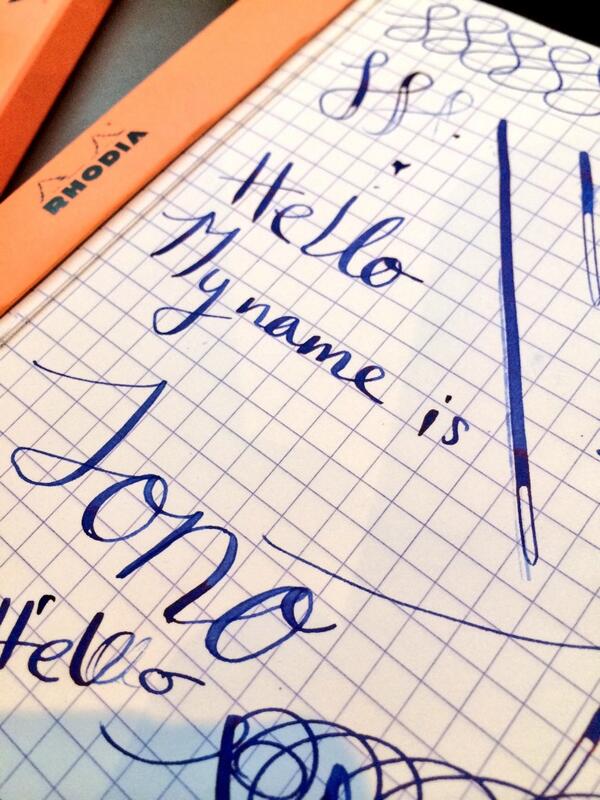 RHODIA
Hello
My name is
Jono
Hello